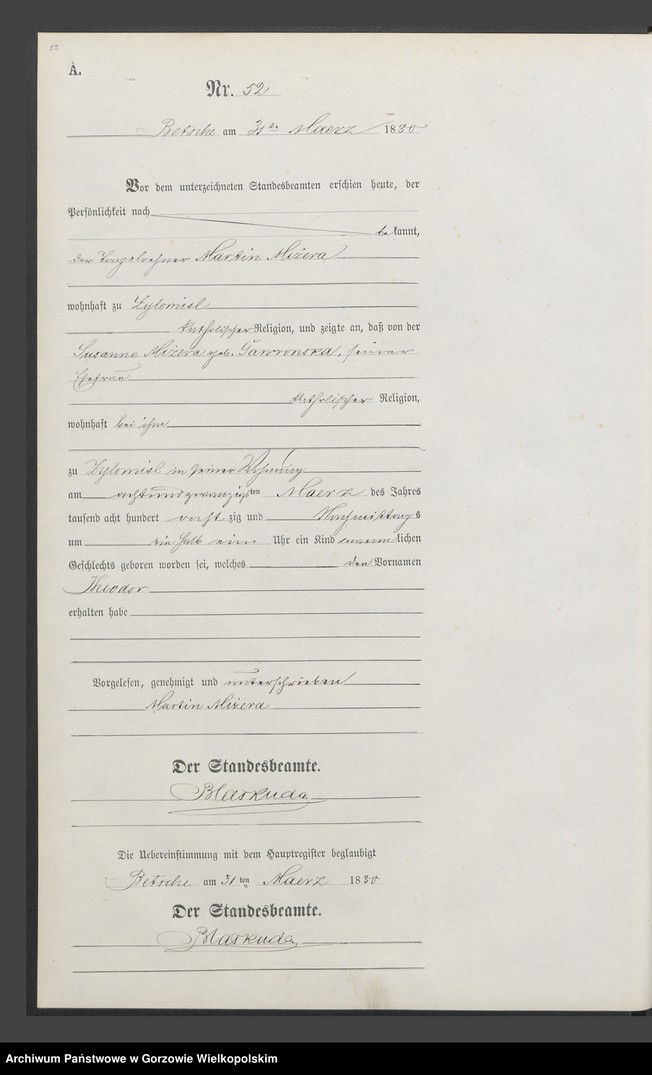 52
A.
Nr. 52
Betsche am 31ten Maerz 1880
Vor dem unterzeichneten Standesbeamten erschien heute, der
Persönlichkeit nach
bekannt,
der Martin Mizera
wohnhaft zu Zylomisl
katholischer Religion, und zeigte an, daß von der
Susanne Mizera geb. Gaworonska, seiner
Ehefrau
katholischer Religion,
wohnhaft bei ihm
zu Zylomisl in seiner Wohnung
am achtundzwanzigsten Maerz des Jahres
tausend acht hundert acht zig und Nachmittags
um ein halb ein Uhr ein Kind maennlichen
Geschlechts geboren worden sei, welches den Vornamen
Theodor
erhalten habe
Vorgelesen, genehmigt und unterschrieben
Martin Mizera
Der Standesbeamte.
Blaskuda
Die Uebereinstimmung mit dem Hauptregister beglaubigt
Betsche am 31ten Maerz 1880
Der Standesbeamte.
Blaskuda
Archiwum Państwowe w Gorzowie Wielkopolskim